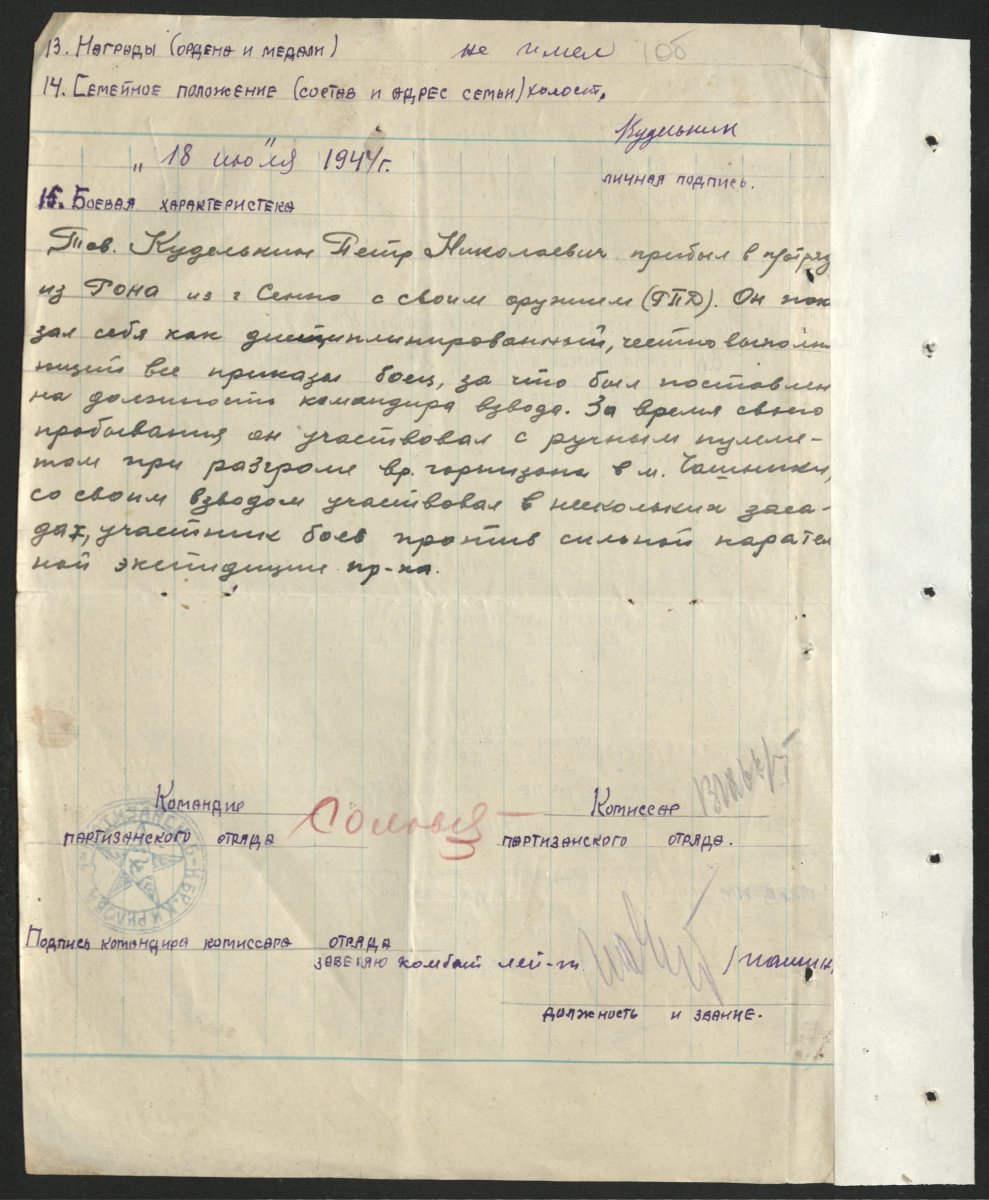 13. Награды (ордена и медали) не имел 106
14. Семейное положение (состав и адрес семьи) холост,
Куделькин
"18 июля" 1944г.
личная подпись.
15. Боевая характеристека
Тов. Куделькин Петр Николаевич прибыл в п/отряд
из Рона из г Сенно с своим оружием (РПД). Он пок
зал себя как дисциплинированный, честно выполн
нщий все приказы боец, за что был поставлен
на должность командира взвода. За время своего
пребывания он участвовал с ручным пулеме-
том при разгроме вр. горнизона в м. Чашники,
со своим взводом участвовал в нескольких заса-
дах, участник боев против сильной карател
ной экспидиции пр-ка.
Командир
партизанского отряда
Комиссар
партизанского отряда.
Подпись командира комиссара отряда
заверяю комбат лей-т
должность и звание.